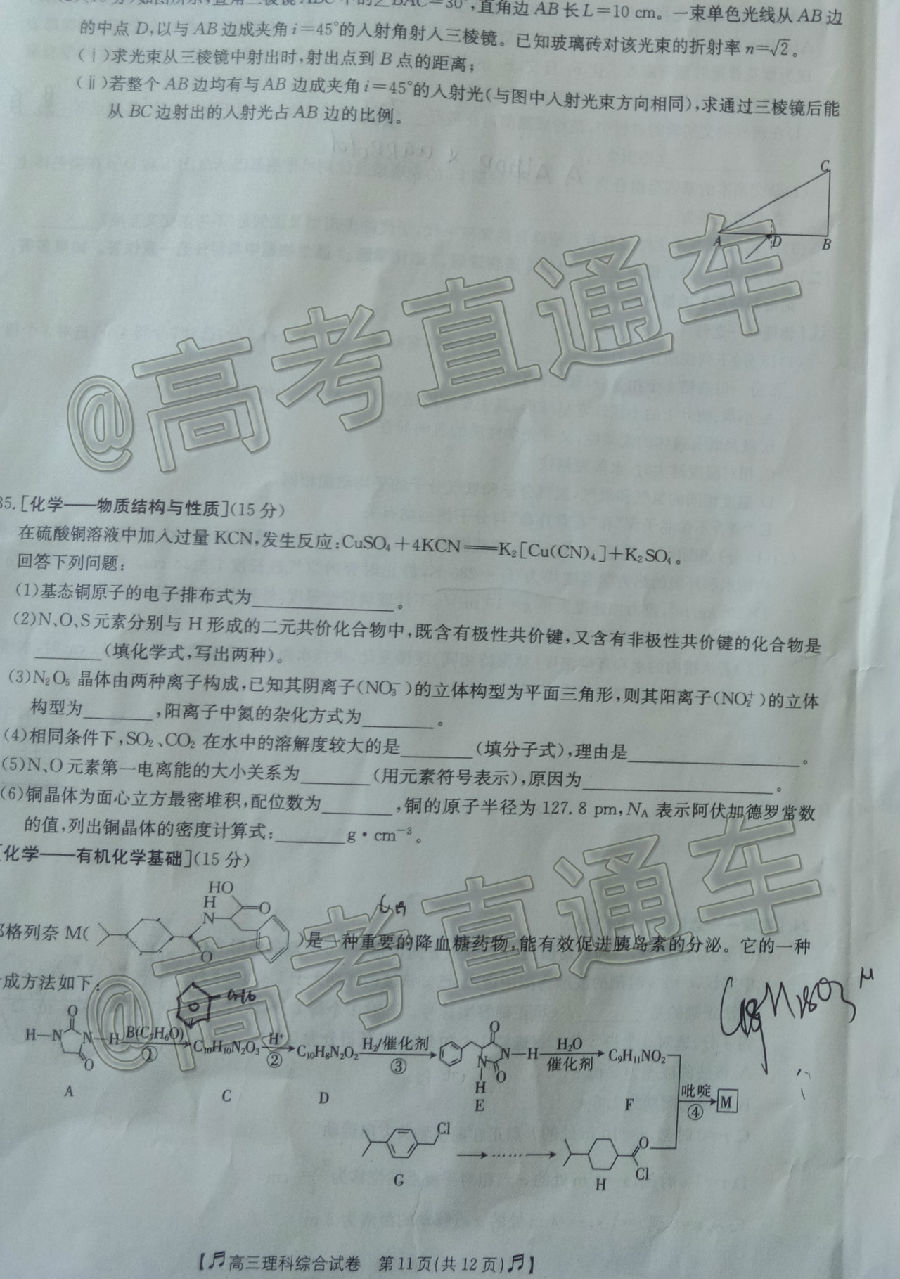 直角边 AB 长 L=10 cm。一束单色光线从 AB 边
的中点 D,以与 AB 边成夹角 i=45°的入射角射入三棱镜。已知玻璃砖对该光束的折射率 n=√2。
(ⅰ)求光束从三棱镜中射出时,射出点到 B 点的距离;
(ⅱ)若整个 AB 边均有与 AB 边成夹角 i=45°的入射光(与图中入射光束方向相同),求通过三棱镜后能
从 BC 边射出的入射光占 AB 边的比例。
C
A D B
@高考直通车
35.[化学——物质结构与性质](15 分)
在硫酸铜溶液中加入过量 KCN,发生反应:CuSO₄+4KCN══K₂[Cu(CN)₄]+K₂SO₄。
回答下列问题:
(1)基态铜原子的电子排布式为________。
(2)N、O、S 元素分别与 H 形成的二元共价化合物中,既含有极性共价键,又含有非极性共价键的化合物是
________(填化学式,写出两种)。
(3)N₂O₅ 晶体由两种离子构成,已知其阴离子(NO₃⁻)的立体构型为平面三角形,则其阳离子(NO₂⁺)的立体
构型为________,阳离子中氮的杂化方式为________。
(4)相同条件下,SO₂、CO₂ 在水中的溶解度较大的是________(填分子式),理由是________。
(5)N、O 元素第一电离能的大小关系为________(用元素符号表示),原因为________。
(6)铜晶体为面心立方最密堆积,配位数为________,铜的原子半径为 127.8 pm,N_A 表示阿伏加德罗常数
的值,列出铜晶体的密度计算式:________g·cm⁻³。
[化学——有机化学基础](15 分)
@高考直通车
HO
H
N O
O
格列奈 M( )是一种重要的降血糖药物,能有效促进胰岛素的分泌。它的一种
成方法如下:
O
H—N N—H B(C₇H₆O) ① C₁₀H₁₀N₂O₃ H⁺ ② C₁₀H₈N₂O₂ H₂/催化剂 ③ O N—H N O H H₂O 催化剂 C₉H₁₁NO₂
O
A C D E F 吡啶 ④ M
Cl
G …… O Cl H
【高三理科综合试卷 第 11 页(共 12 页)】